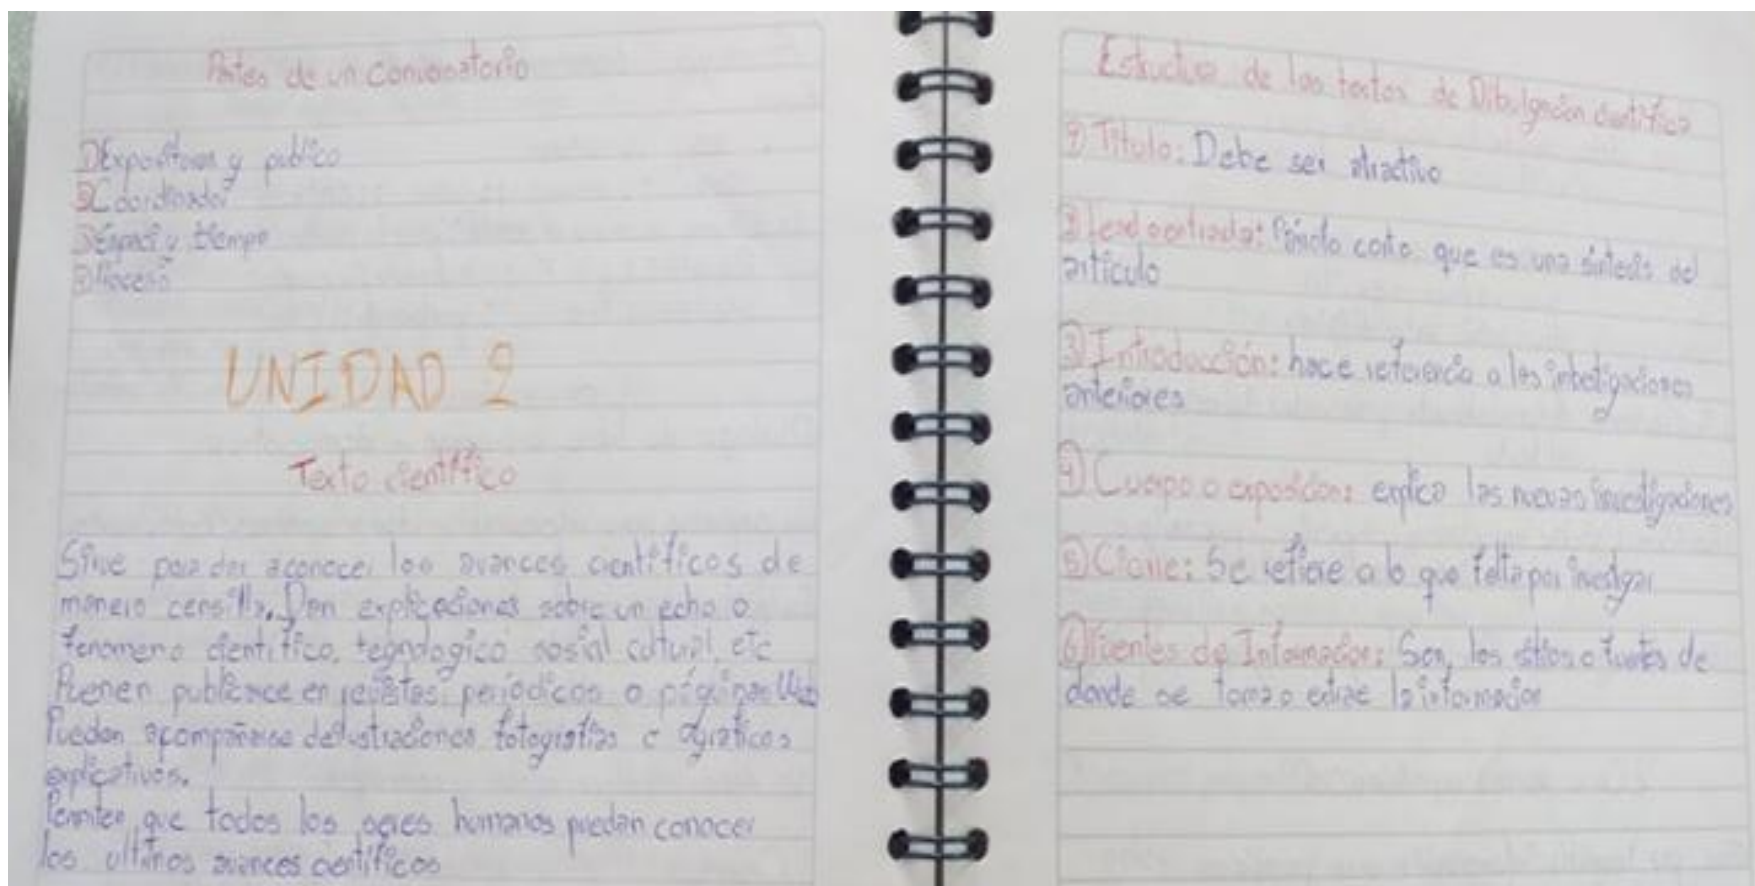 Partes de un Conversatorio
1) Expositores y publico
2) Coordinador
3) Espaci y tiempo
4) Proceso
UNIDAD 2
Texto cientifico
Sirve para dar aconocer los avances cientificos de
manera censilla. Dan explicaciones sobre un echo o
fenomeno cientifico, tegnologico sosial coltural, etc
Puenen publicarce en revistas periodicos o páginas Web
Pueden acompañarse de ilustraciones fotografias o graficos
explicativos.
Permiten que todos los seres humanos puedan conocer
los ultimos avances cientificos
Estuctura de los textos de Dibulgacion cientifica
1) Titulo: Debe ser atractivo
2) entrada: Párrafo corto que es una sintesis del
articulo
3) Introducción: hace referencia a las inbestigaciones
anteriores
4) Cuerpo o exposicion: explica las nuevas investigaciones
5) Cierre: Se refiere a lo que falta por investigar
6) Fuentes de Informacion: Son los sitios o fuentes de
donde se toma o extrae la informacion